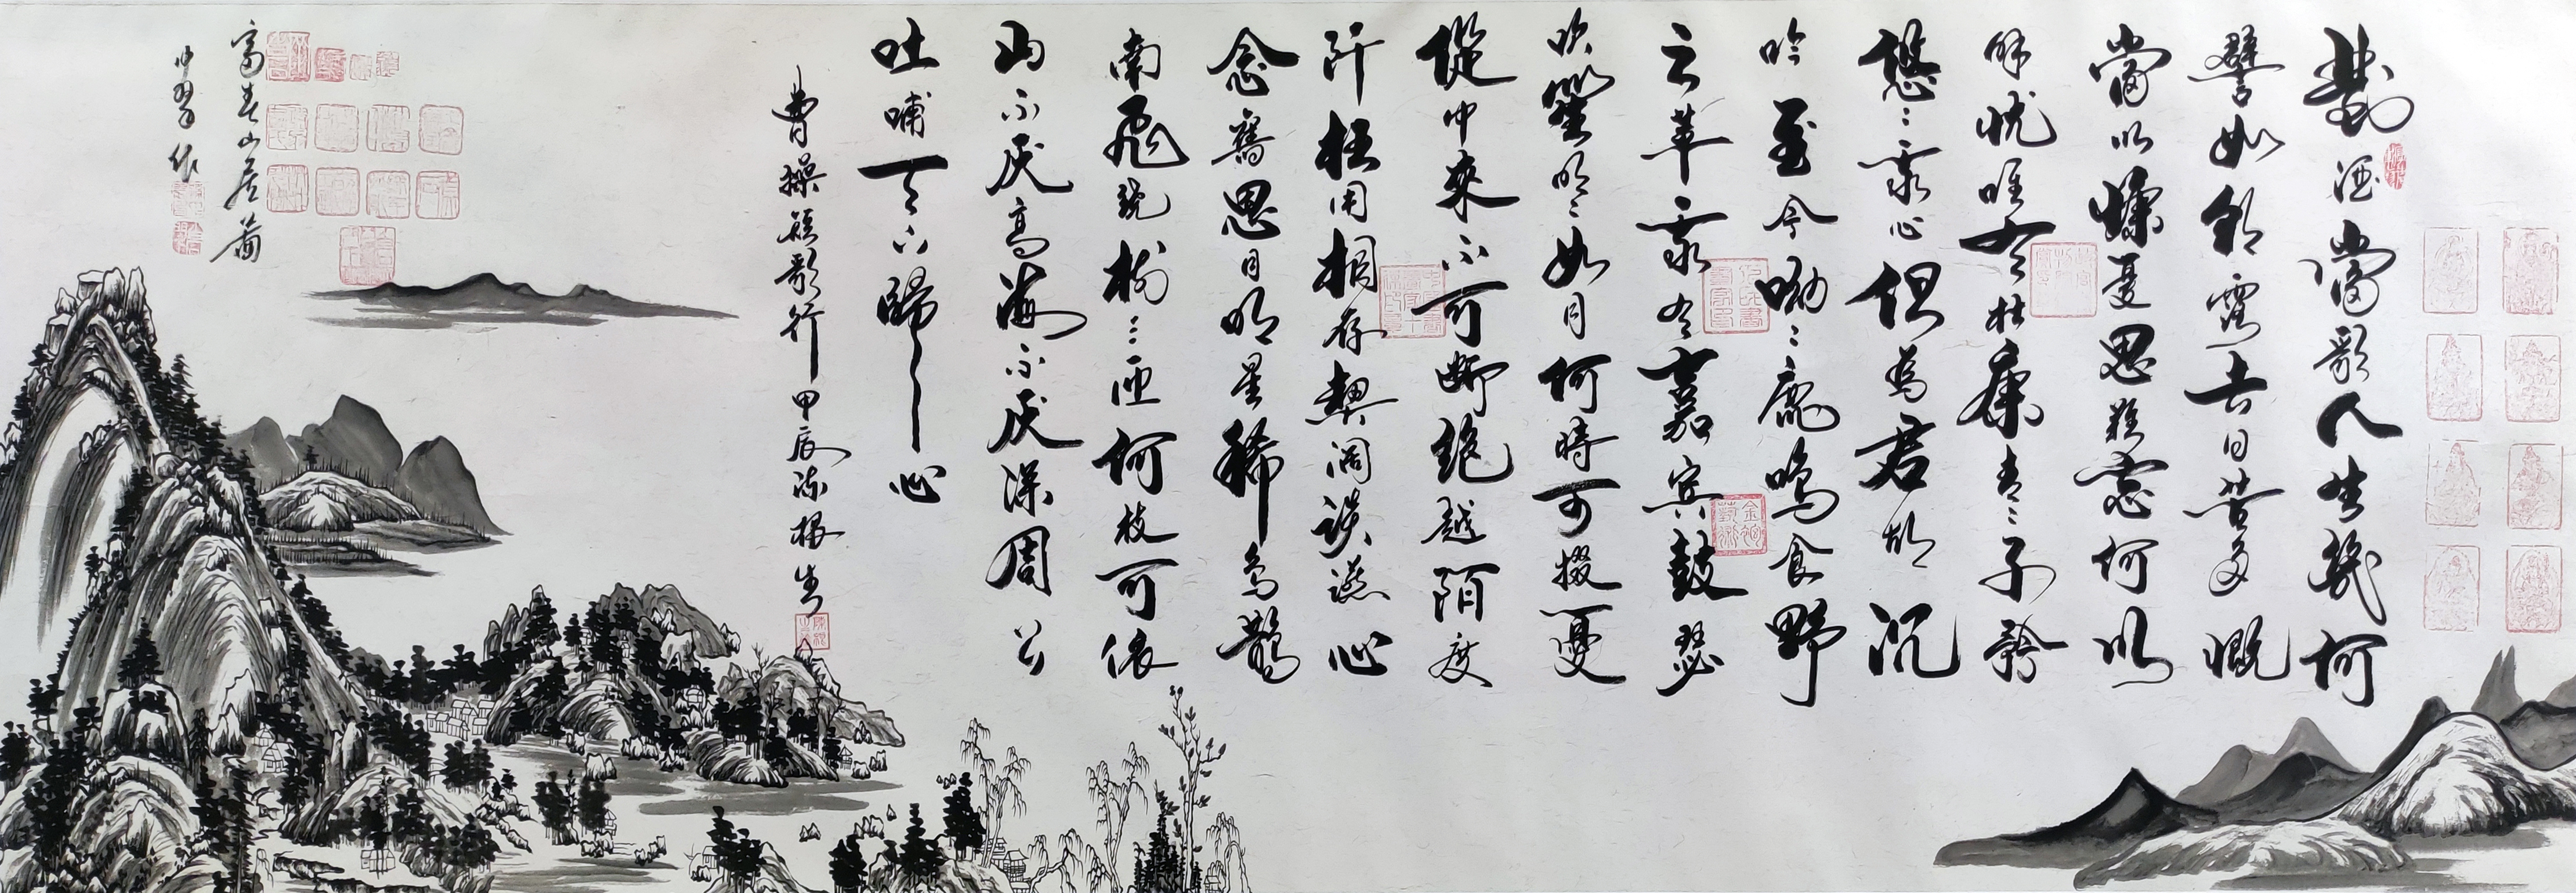 對酒當歌人生幾何
譬如朝露去日苦多慨
當以慷憂思難忘何以
解憂唯有杜康青〻子衿
悠〻我心但為君故沉
吟至今呦〻鹿鳴食野
之苹我有嘉賓鼓瑟
吹笙明〻如月何時可掇憂
從中來不可斷絕越陌度
阡枉用相存契闊談讌心
念舊恩月明星稀烏鵲
南飛繞樹三匝何枝可依
山不厭高海不厭深周公
吐哺天下歸心
曹操短歌行甲辰
富春山居圖